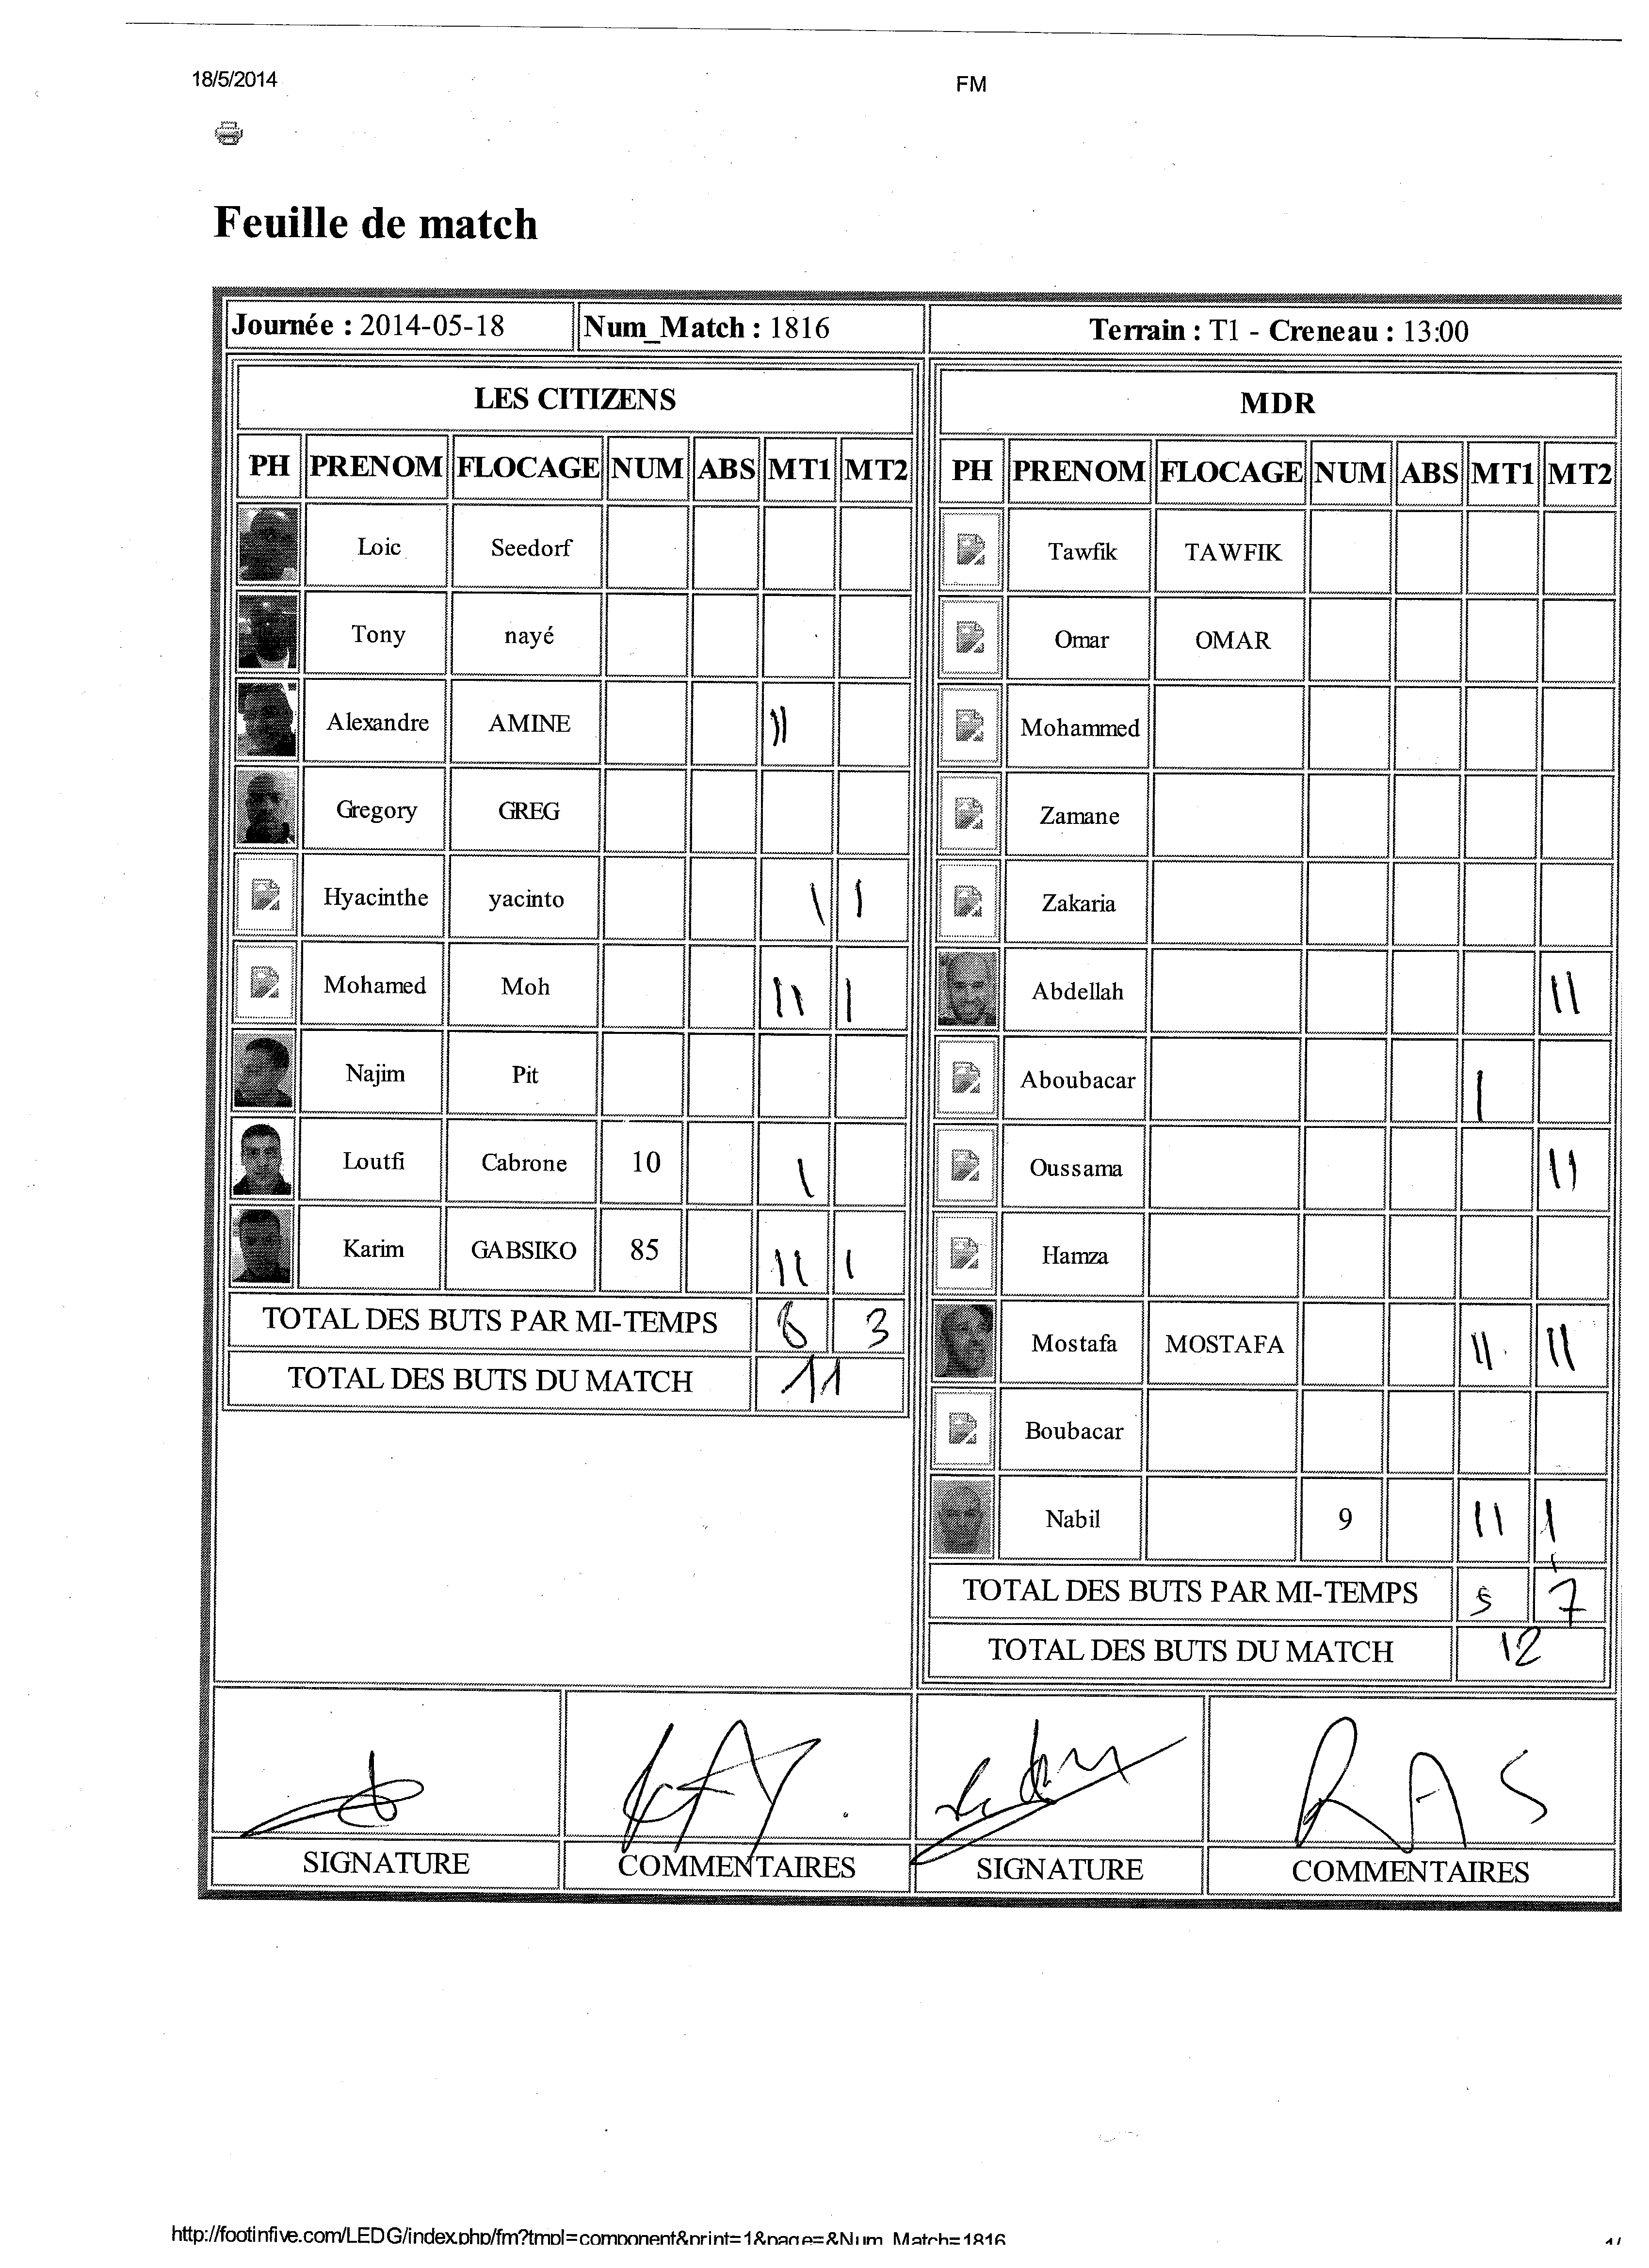 18/5/2014 FM
Feuille de match
Journée : 2014-05-18 Num_Match : 1816 Terrain : T1 - Creneau : 13:00
LES CITIZENS
PH PRENOM FLOCAGE NUM ABS MT1 MT2
Loic Seedorf
Tony nayé
Alexandre AMINE ||
Gregory GREG
Hyacinthe yacinto | |
Mohamed Moh || |
Najim Pit
Loutfi Cabrone 10 |
Karim GABSIKO 85 || |
TOTAL DES BUTS PAR MI-TEMPS 8 3
TOTAL DES BUTS DU MATCH 11
MDR
PH PRENOM FLOCAGE NUM ABS MT1 MT2
Tawfik TAWFIK
Omar OMAR
Mohammed
Zamane
Zakaria
Abdellah ||
Aboubacar |
Oussama ||
Hamza
Mostafa MOSTAFA || ||
Boubacar
Nabil 9 || |
TOTAL DES BUTS PAR MI-TEMPS 5 7
TOTAL DES BUTS DU MATCH 12
RAS
SIGNATURE COMMENTAIRES SIGNATURE COMMENTAIRES
http://footinfive.com/LEDG/index.php/fm?tmpl=component&print=1&page=&Num_Match=1816 1/